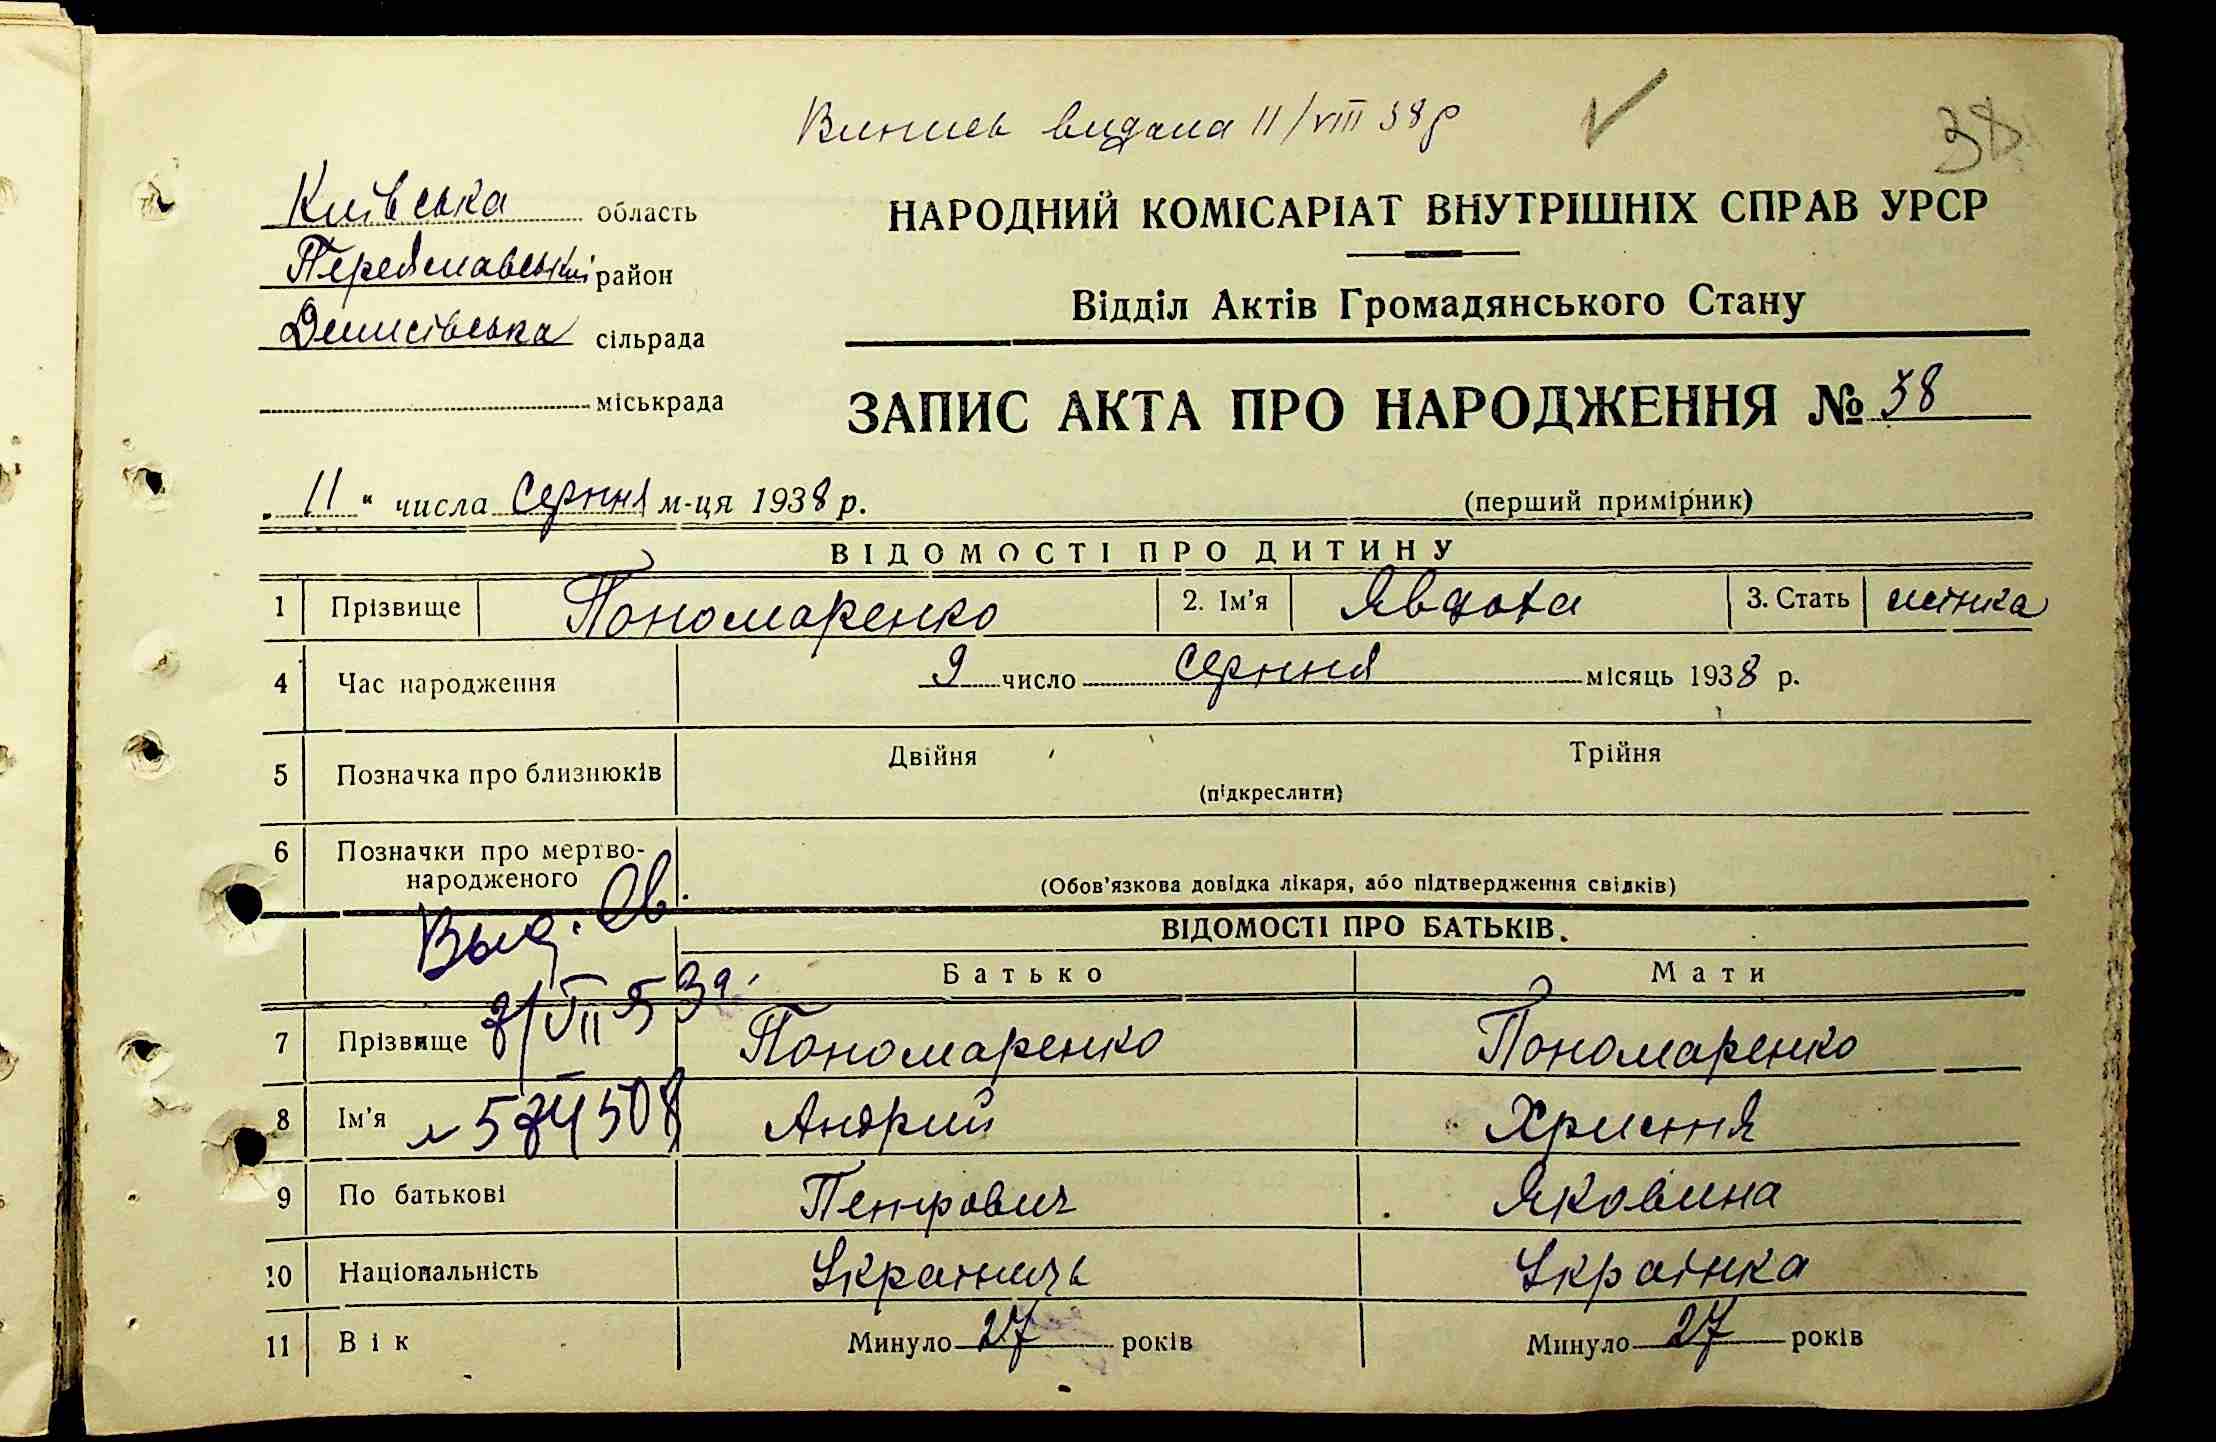 Випись видана 11/VIII 38 р
38
Київська область
Переяславський район
Денисівська сільрада
міськрада
НАРОДНИЙ КОМІСАРІАТ ВНУТРІШНІХ СПРАВ УРСР
Відділ Актів Громадянського Стану
ЗАПИС АКТА ПРО НАРОДЖЕННЯ № 38
„ 11 “ числа серпня м-ця 1938 р.
(перший примірник)
ВІДОМОСТІ ПРО ДИТИНУ
1 Прізвище Пономаренко 2. Ім'я Явдоха 3. Стать жінка
4 Час народження 9 число серпня місяць 1938 р.
5 Позначка про близнюків Двійня Трійня
(підкреслити)
6 Позначки про мертво-
народженого (Обов'язкова довідка лікаря, або підтвердження свідків)
Выд. Св.
ВІДОМОСТІ ПРО БАТЬКІВ.
Батько Мати
7/VII 53 г.
7 Прізвище Пономаренко Пономаренко
№ 574508
8 Ім'я Андрий Христня
9 По батькові Петрович Яковина
10 Національність Українець Українка
11 Вік Минуло 27 років Минуло 27 років